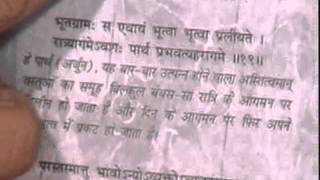 भूतग्रामः स एवायं भूत्वा भूत्वा प्रलीयते ।
रात्र्यागमेऽवशः पार्थ प्रभवत्यहरागमे ॥१९॥
हे पार्थ (अर्जुन), यह बार-बार उत्पन्न होने वाला अस्तित्वमान्
वस्तुओं का समूह बिल्कुल बेबस-सा रात्रि के आगमन पर
विलीन हो जाता है और दिन के आगमन पर फिर अपने
में प्रकट हो जाता है।
परस्तस्मात्तु भावोऽन्योऽव्यक्तो